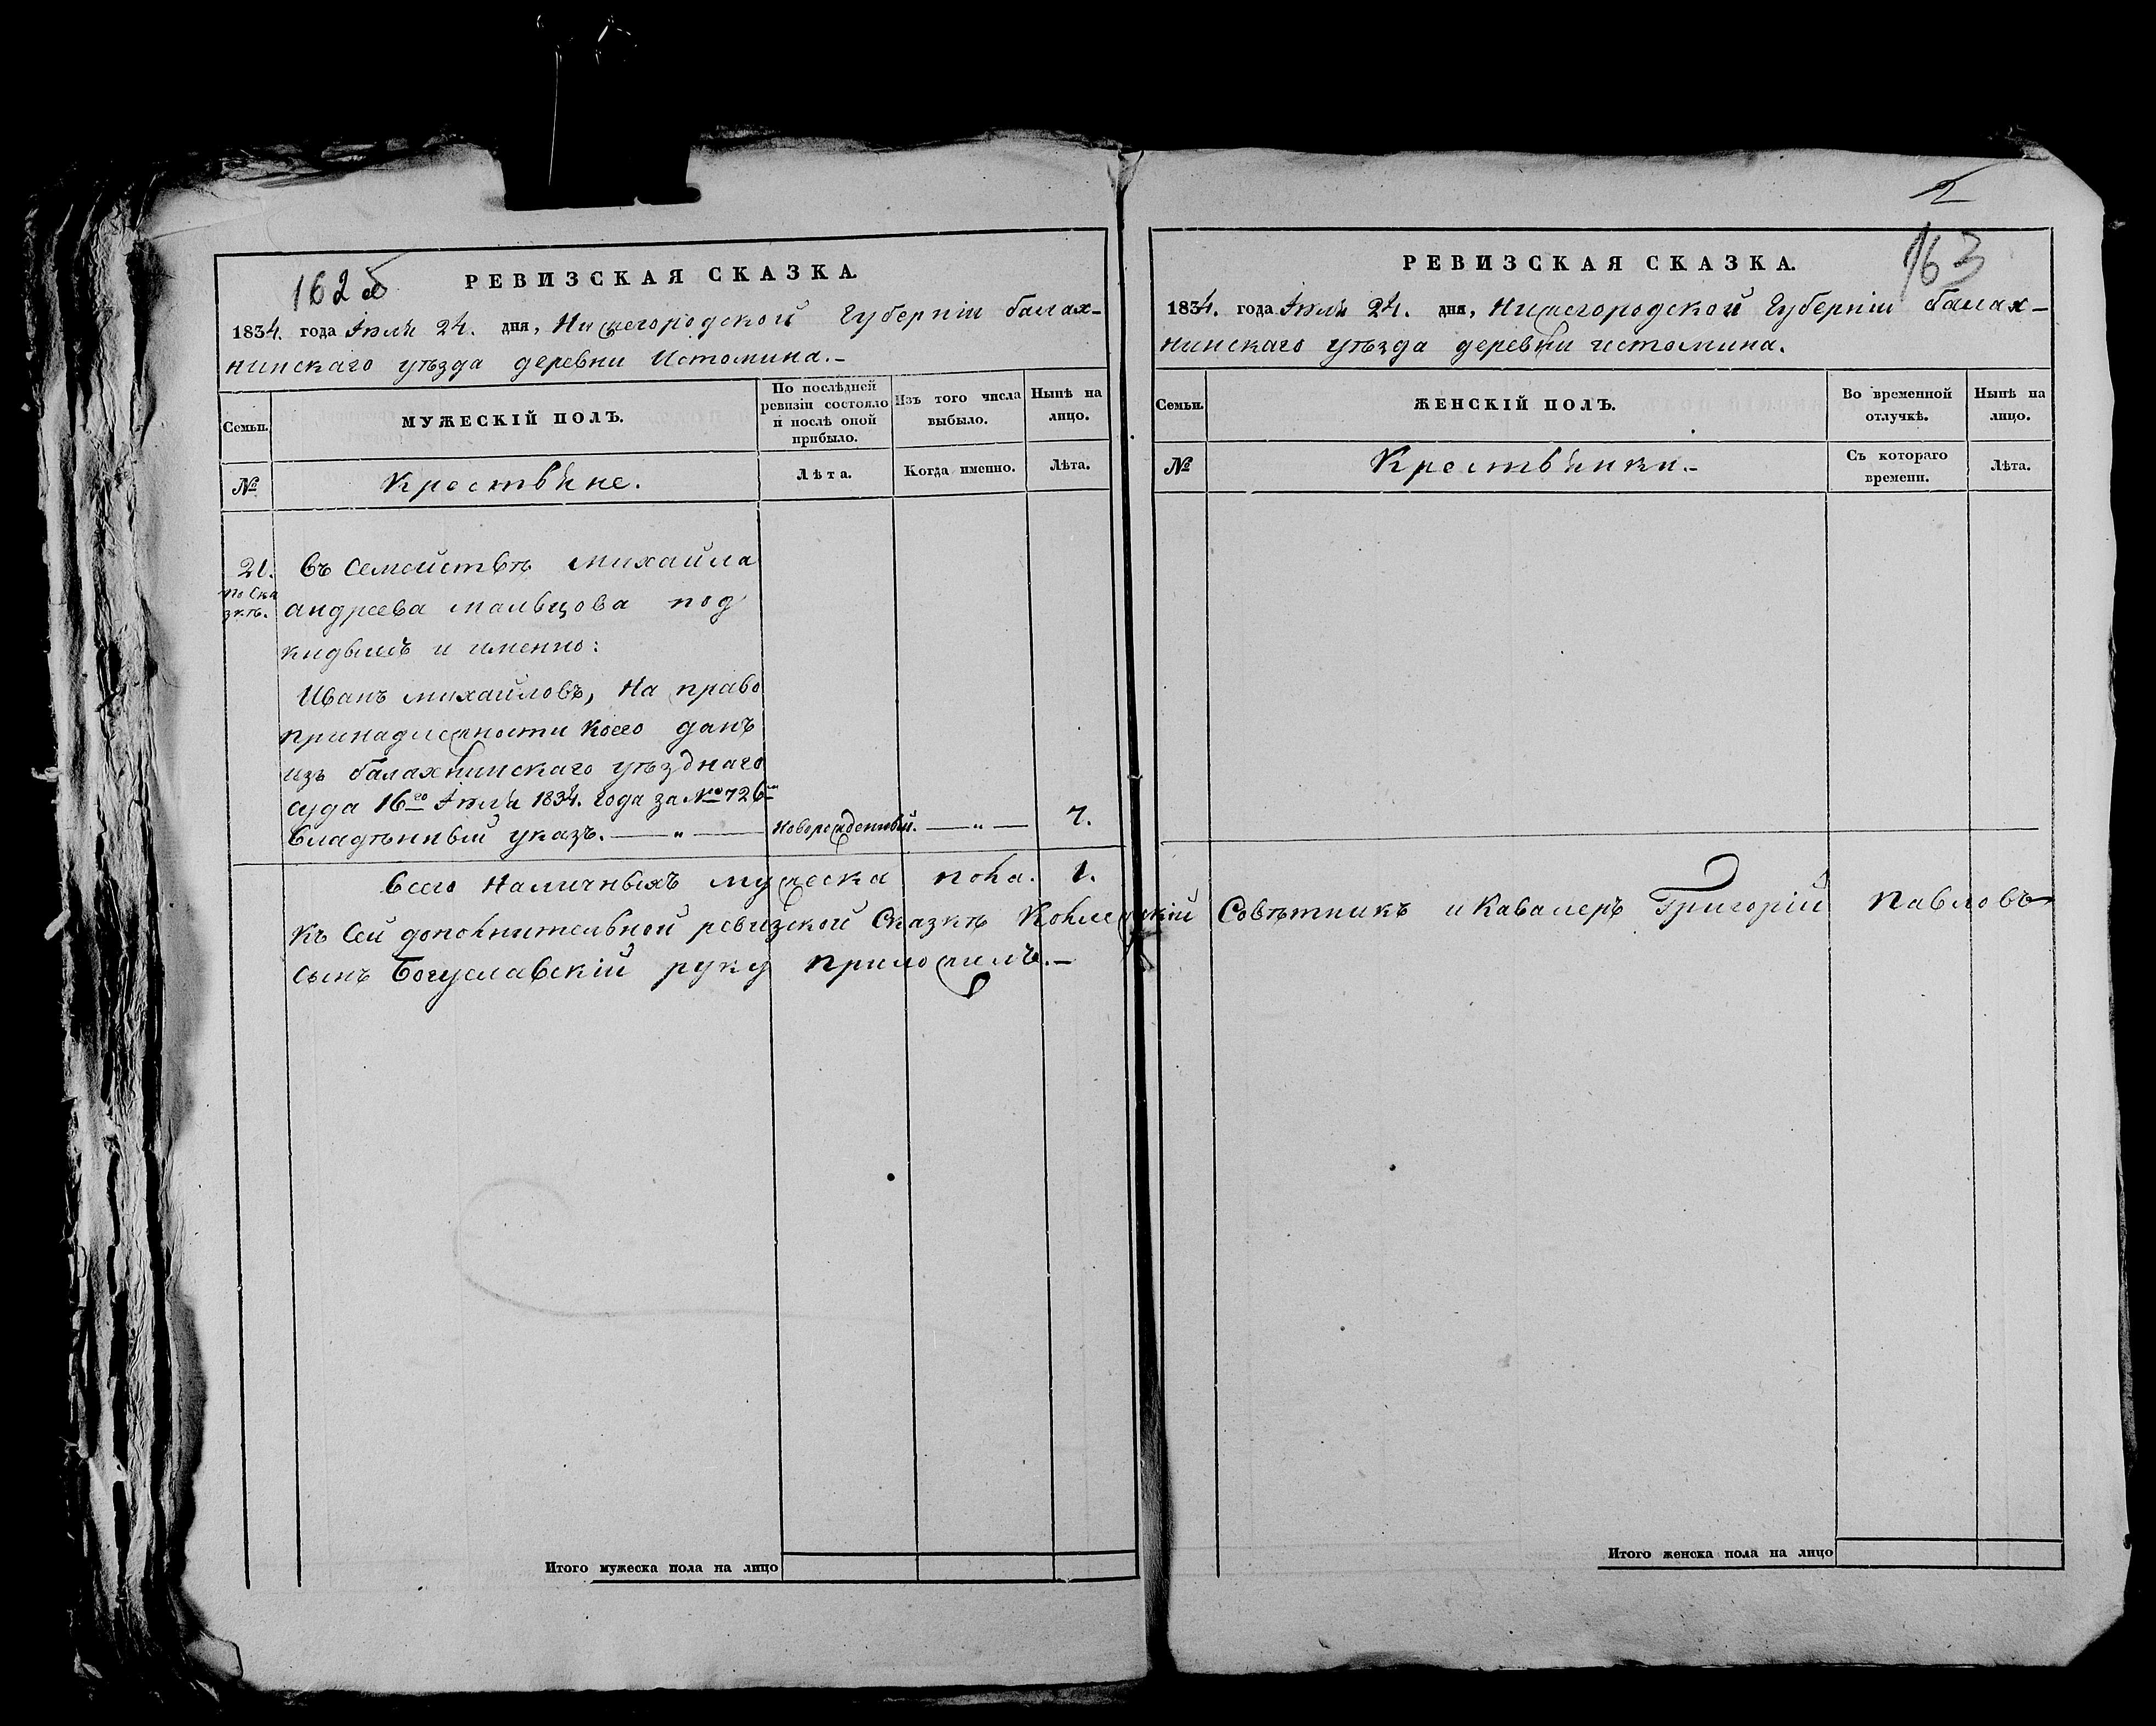 162 об
РЕВИЗСКАЯ СКАЗКА.
1834. года Іюля 24. дня, Нижегородской Губерніи балах-
нинскаго уѣзда деревни Истомина.-
Семьи.
МУЖЕСКІЙ ПОЛЪ.
По послѣдней
ревизіи состояло
и послѣ оной
прибыло.
Изъ того числа
выбыло.
Нынѣ на
лицо.
№
Крестьяне.
Лѣта.
Когда именно.
Лѣта.
21.
по Ска
зкѣ.
Въ Семействѣ михайла
андреева мальцова под
кидышъ и именно:
Иванъ михайловъ, На право
принадлежности коего данъ
изъ балахнинскаго уѣзднаго
суда 16го Іюля 1834. года за № 726м
Владѣнный указъ. — " — Новорожденный. — " — 7.
Всего Наличныхъ мужеска пола. 1.
Къ Сей дополнительной ревизской Сказкѣ Коллежскій Совѣтникъ и Кавалеръ Григорій Павловъ
сынъ Богуславскій руку приложилъ.-
Итого мужеска пола на лицо
2
163
РЕВИЗСКАЯ СКАЗКА.
1834. года Іюля 24. дня, Нижегородской Губерніи балах-
нинскаго уѣзда деревни истомина.
Семьи.
ЖЕНСКІЙ ПОЛЪ.
Во временной
отлучкѣ.
Нынѣ на
лицо.
№
Крестьянки.-
Съ котораго
времени.
Лѣта.
Итого женска пола на лицо